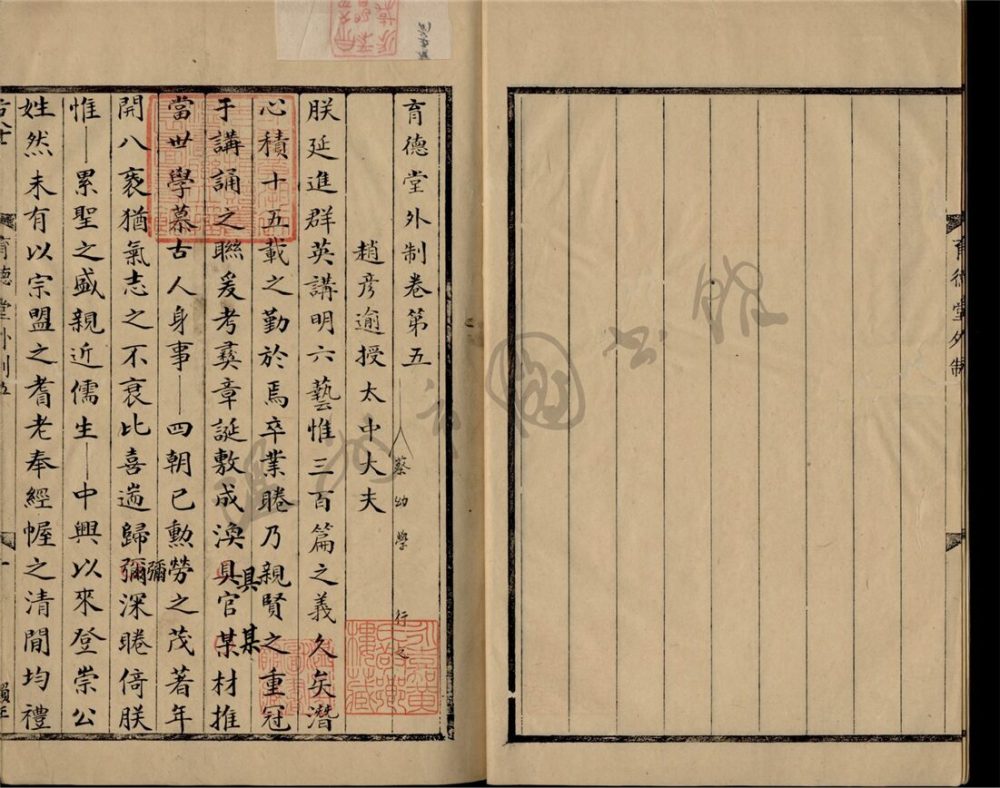 育德堂外制卷第五
蔡幼學 行之
趙彥逾授太中大夫
朕延進群英講明六藝惟三百篇之義久矣潛
心積十五載之勤於焉卒業睠乃親賢之重冠
于講誦之聯爰考彛章誕敷成渙具官某材推
具 某
當世學慕古人身事四朝已勲勞之茂著年
開八袠猶氣志之不衰比喜遄歸彌深睠倚朕
彌
惟累聖之盛親近儒生中興以來登崇公
姓然未有以宗盟之耆老奉經幄之清閒均禮
育德堂外制五
育德堂外制
永嘉黃氏㴓鄉樓藏